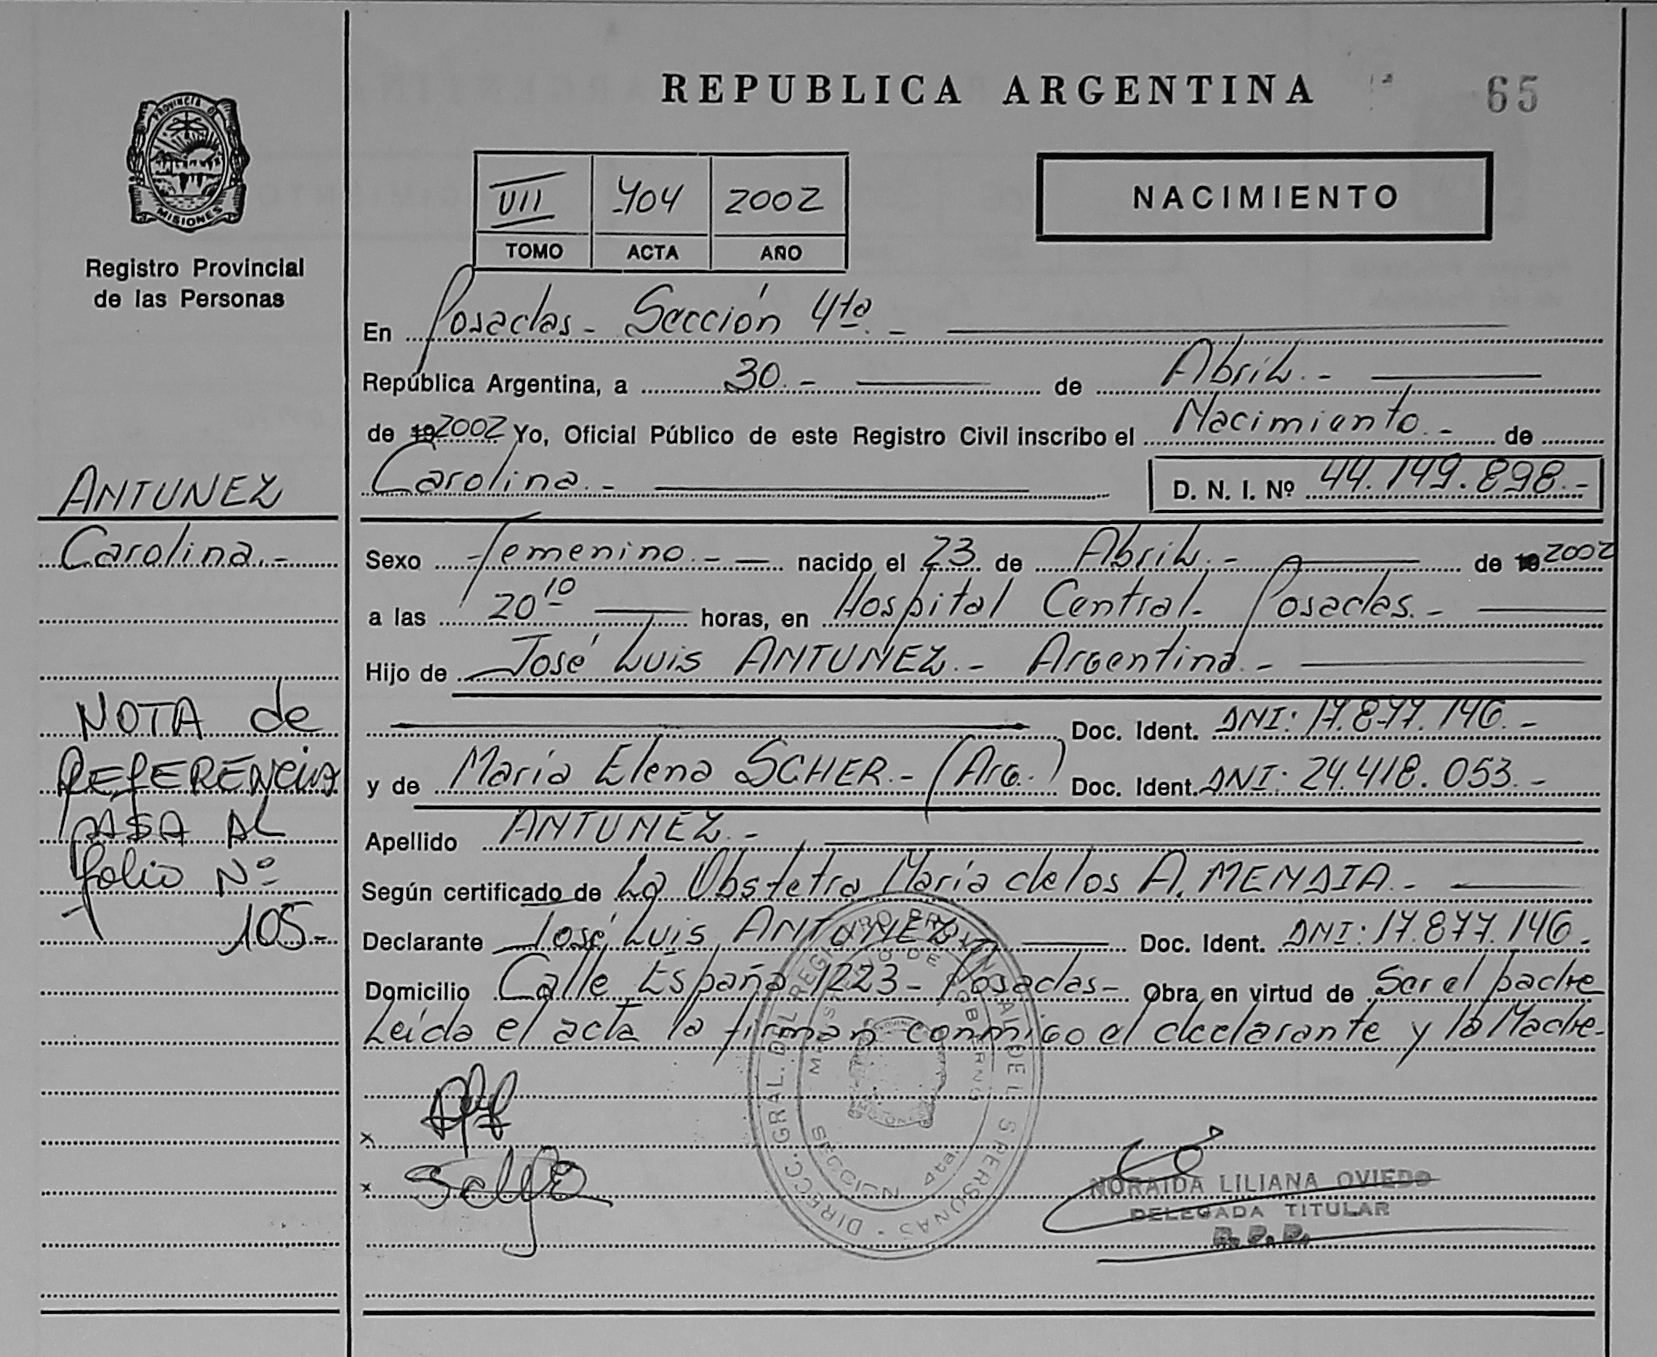 REPUBLICA ARGENTINA
65
PROVINCIA DE
MISIONES
Registro Provincial
de las Personas
VII 404 2002
TOMO ACTA AÑO
NACIMIENTO
En Posadas - Sección 4ta. -
República Argentina, a 30. - de Abril. -
de 19 2002 Yo, Oficial Público de este Registro Civil inscribo el Nacimiento. - de
Carolina. - D. N. I. Nº 44.149.898.-
ANTUNEZ
Carolina.-
Sexo femenino. - nacido el 23 de Abril. - de 19 2002
a las 20 10 horas, en Hospital Central - Posadas. -
Hijo de José Luis ANTUNEZ. - Argentina. -
Doc. Ident. DNI: 17.877.146. -
y de María Elena SCHER. - (Arg.) Doc. Ident. DNI: 24.418.053. -
Apellido ANTUNEZ. -
Según certificado de La Obstetra María de los A. MENDIA. -
Declarante José Luis ANTUNEZ Doc. Ident. DNI: 17.877.146.
Domicilio Calle España 1223 - Posadas - Obra en virtud de Ser el padre
Leída el acta la firman conmigo el declarante y la Madre-
NOTA de
REFERENCIA
PASA AL
folio Nº
105-
DIRECC. GRAL. DEL REGISTRO PROVINCIAL DE L S PERSONAS -
SECCION 4ta.
MISIONES
x
x
NORAIDA LILIANA OVIEDO
DELEGADA TITULAR
R. P. P.